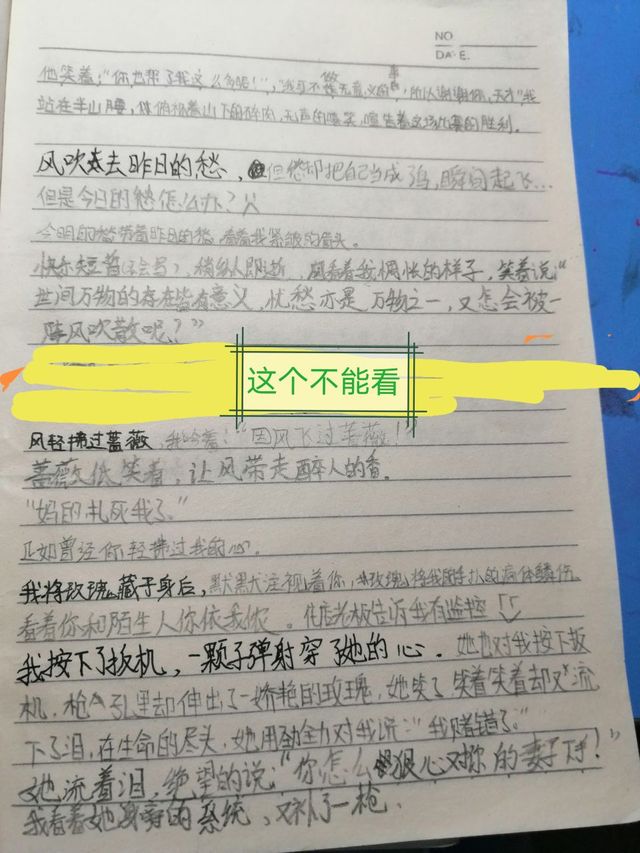 NO
DATE.
他笑着:“你也帮了我这么多呢!”,“我可不做无意义的事,所以谢谢你,天才”我
站在半山腰,俯视着山下的碎肉,无声的嘲笑,宣告着这场比赛的胜利。
风吹去昨日的愁,但愁却把自己当成鸡,瞬间起飞...
但是今日的愁怎么办?
今明的愁带着昨日的愁,看着我紧皱的眉头。
快乐短暂(不会写),稍纵即逝,风看着我惆怅的样子,笑着说“
世间万物的存在皆有意义,忧愁亦是万物之一,又怎会被一
阵风吹散呢?”
这个不能看
风轻拂过蔷薇,我吟着!“因风飞过蔷薇!”
蔷薇低笑着,让风带走醉人的香。
“妈的扎死我了。”
正如曾经你轻拂过我的心。
我将玫瑰藏于身后,默默注视着你,玫瑰将我的遍体鳞伤
看着你和陌生人你依我侬。花店老板告诉我有监控
我按下了扳机,一颗子弹射穿了她的心。她也对我按下扳
机,枪孔里却伸出了一娇艳的玫瑰,她笑了笑着笑着却又流
下了泪,在生命的尽头,她用劲全力对我说:“我赌错了。”
她流着泪,绝望的说:“你怎么狠心对你的妻子下手!”
我看着她身旁的系统,又补了一枪.